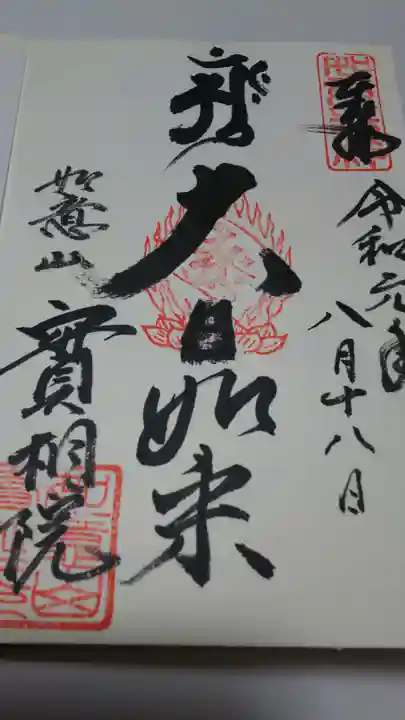 奉
令和元年
八月十八日
大日如来
如意山
實相院